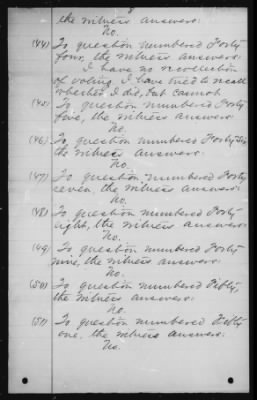 8
the witness answers:
No.
(44) To question numbered Forty
four, the witness answers:
I have no recollection
of voting. I have tried to recall
whether I did, but cannot.
(45) To question numbered Forty
five, the witness answers:
No.
(46) To question numbered Forty six
the witness answers:
No.
(47) To question numbered Forty
seven, the witness answers:
No.
(48) To question numbered Forty
eight, the witness answers:
No.
(49) To question numbered Forty
nine, the witness answers:
No.
(50) To question numbered Fifty,
the witness answers:
No.
(51) To question numbered Fifty
one, the witness answers:
No.